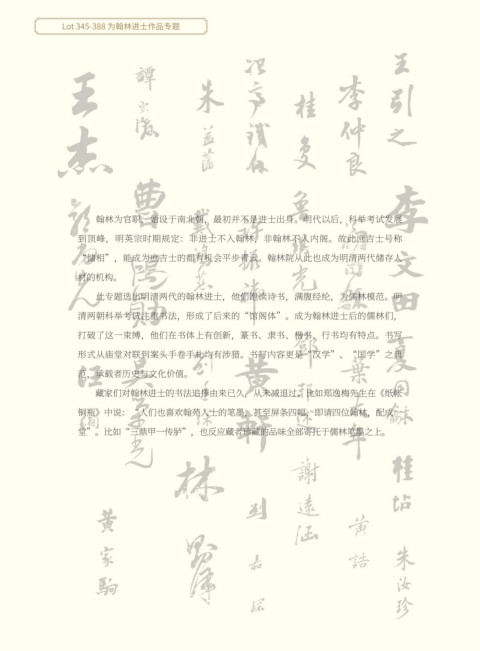 Lot 345-388 为翰林进士作品专题
翰林为官职，始设于南北朝，最初并不是进士出身。明代以后，科举考试发展
到顶峰，明英宗时期规定：非进士不入翰林，非翰林不入内阁。故此庶吉士号称
“储相”，能成为庶吉士的都有机会平步青云。翰林院从此也成为明清两代储存人
材的机构。
此专题选出明清两代的翰林进士，他们饱读诗书，满腹经纶，为儒林模范。明
清两朝科举考试注重书法，形成了后来的“馆阁体”。成为翰林进士后的儒林们，
打破了这一束缚，他们在书体上有创新，篆书、隶书、楷书、行书均有特点。书写
形式从庙堂对联到案头手卷手札均有涉猎。书写内容更是“汉学”、“国学”之典
范，承载者历史与文化价值。
藏家们对翰林进士的书法追捧由来已久，从未减退过。比如郑逸梅先生在《纸帐
铜瓶》中说：“人们也喜欢翰苑人士的笔墨，甚至屏条四幅，即请四位翰林，配成一
堂”。比如“三鼎甲一传胪”，也反应藏者珍藏的品味全部寄托于儒林笔墨之上。
王引之
李仲良
桂复
朱
王杰
李文田
夏同龢
曹鸿勋
吴
黄轩
林
刘
嘉琛
謝遠涵
黄誥
桂坫
朱汝珍
黄家駒